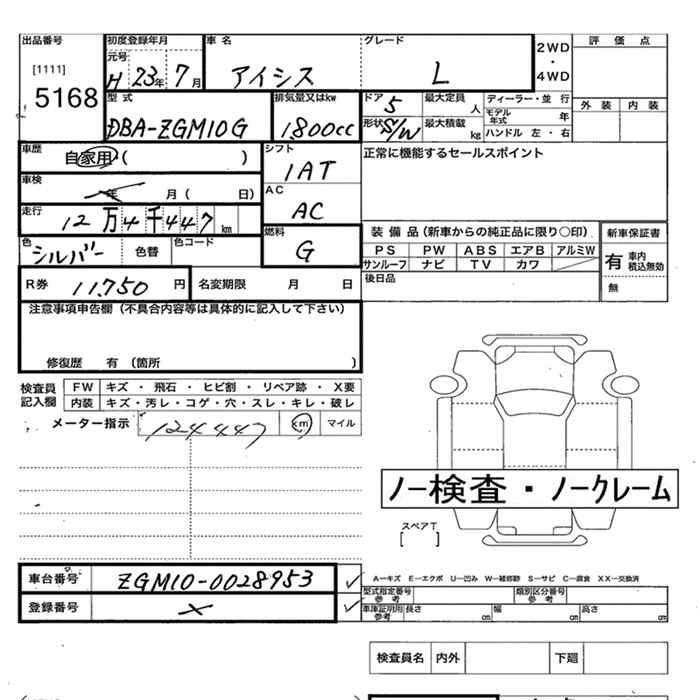 出品番号 初度登録年月 車名 グレード 2WD・4WD 評価点
[1111] 5168 元号 H 23年 7月 アイシス L
外装 内装
型式 排気量又はkw ドア 5 最大定員 人 ディーラー・並行
DBA-ZGM10G 1800cc 形状 S/W 最大積載 kg モデル年式 年
ハンドル 左・右
車歴 自家用 ( ) シフト 1AT 正常に機能するセールスポイント
車検 年 月 ( 日) AC AC
走行 12万4千447 km
色 シルバー 色替 色コード 燃料 G 装備品(新車からの純正品に限り〇印) 新車保証書
PS PW ABS エアB アルミW 有 車内積込無効
サンルーフ ナビ TV カワ
R券 11.750 円 名変期限 月 日 後日品 無
注意事項申告欄(不具合内容等は具体的に記入して下さい)
修復歴 有 (箇所 )
検査員記入欄 FW キズ・飛石・ヒビ割・リペア跡・X要
内装 キズ・汚レ・コゲ・穴・スレ・キレ・破レ
メーター指示 124447 km マイル
ノー検査・ノークレーム
スペアT
[ ]
車台番号 ZGM10-0028953 ✓
A―キズ E―エクボ U―凹み W―補修跡 S―サビ C―腐食 XX―交換済
登録番号 × ✓ 型式指定番号 参考 類別区分番号 参考
車庫証明用 参考 長さ cm 幅 cm 高さ cm
検査員名 内外 下廻